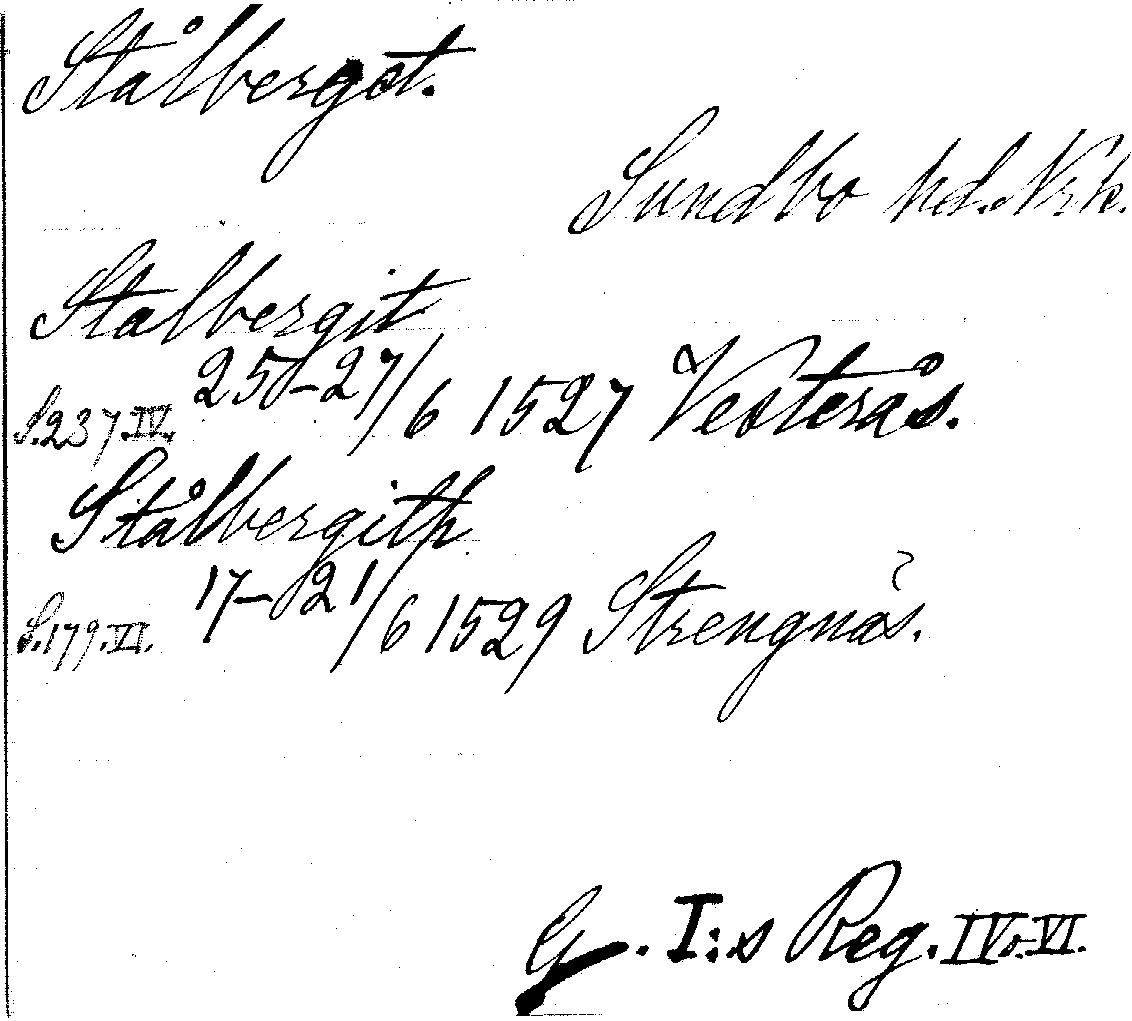 Stålberget.
Sundbo hd. Nrk.
Stalbergit
S. 237. IV. 25-27/6 1527 Vesterås.
Stålbergith
S. 179. VI. 17-21/6 1529 Strengnäs.
G. I:s Reg. IV o. VI.